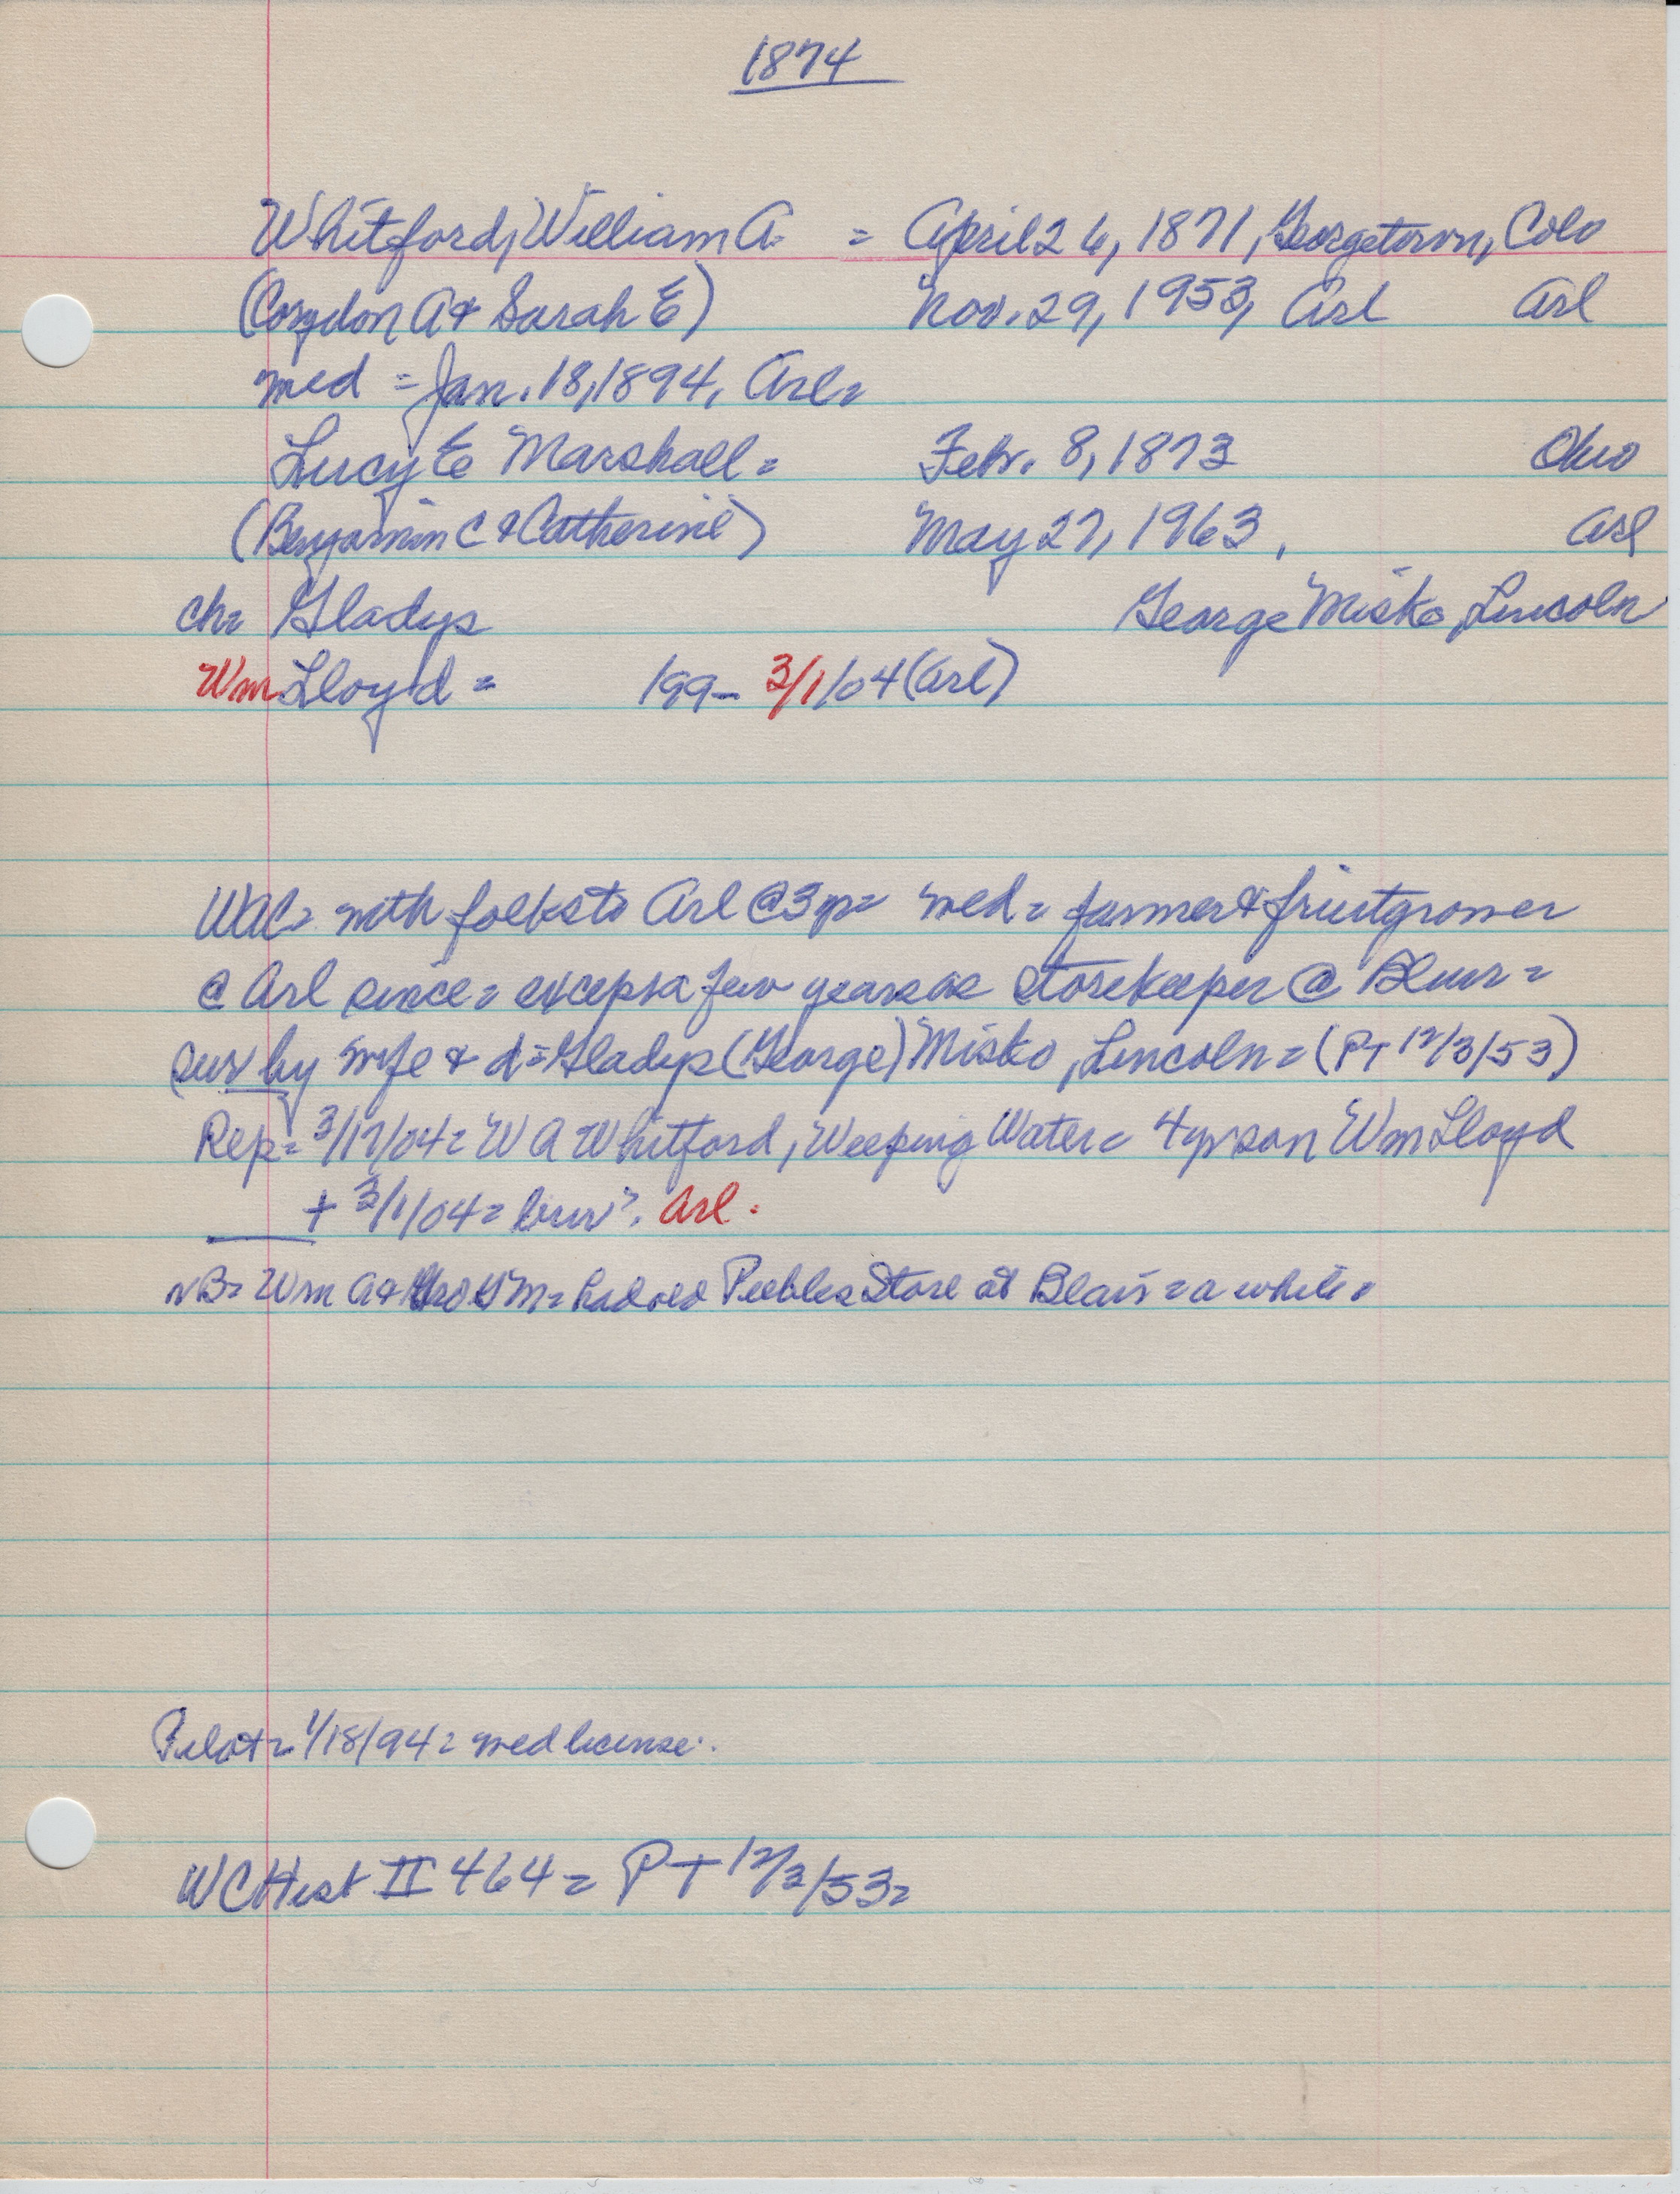 1874
Whitford, William A. = April 26, 1871, Georgetown, Colo
(Corydon A & Sarah E) Nov. 29, 1953, Arl Arl
med = Jan. 18, 1894, Arl=
Lucy E Marshall = Febr. 8, 1873 Ohio
(Benjamin C & Catherine) May 27, 1963, Arl
ch= Gladys George Misko, Lincoln
Wm Lloyd = 199- 3/1/04 (Arl)
with folks to Arl @ 3 yr= med = farmer & fruitgrower
@ Arl since = except a few years as storekeeper @ Blair =
surv by wife & d = Gladys (George) Misko, Lincoln = (PT 12/3/53)
Rep= 3/17/04= W A Whitford, Weeping Water= 4 yr son Wm Lloyd
+ 3/1/04= bur?. Arl.
NB= Wm A & M= had old Peebles Store at Blair = a while.
Pilot= 1/18/94= med license.
WC Hist II 464 = PT 12/3/53=